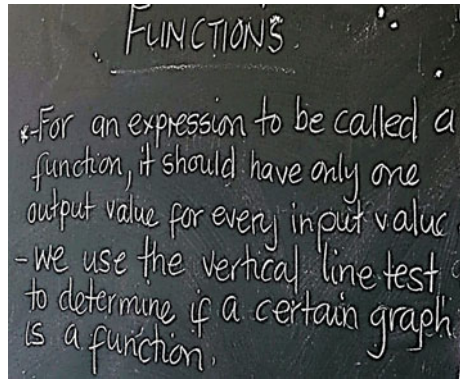 FUNCTIONS.
-For an expression to be called a
function, it should have only one
output value for every input value
- we use the vertical line test
to determine if a certain graph
is a function.